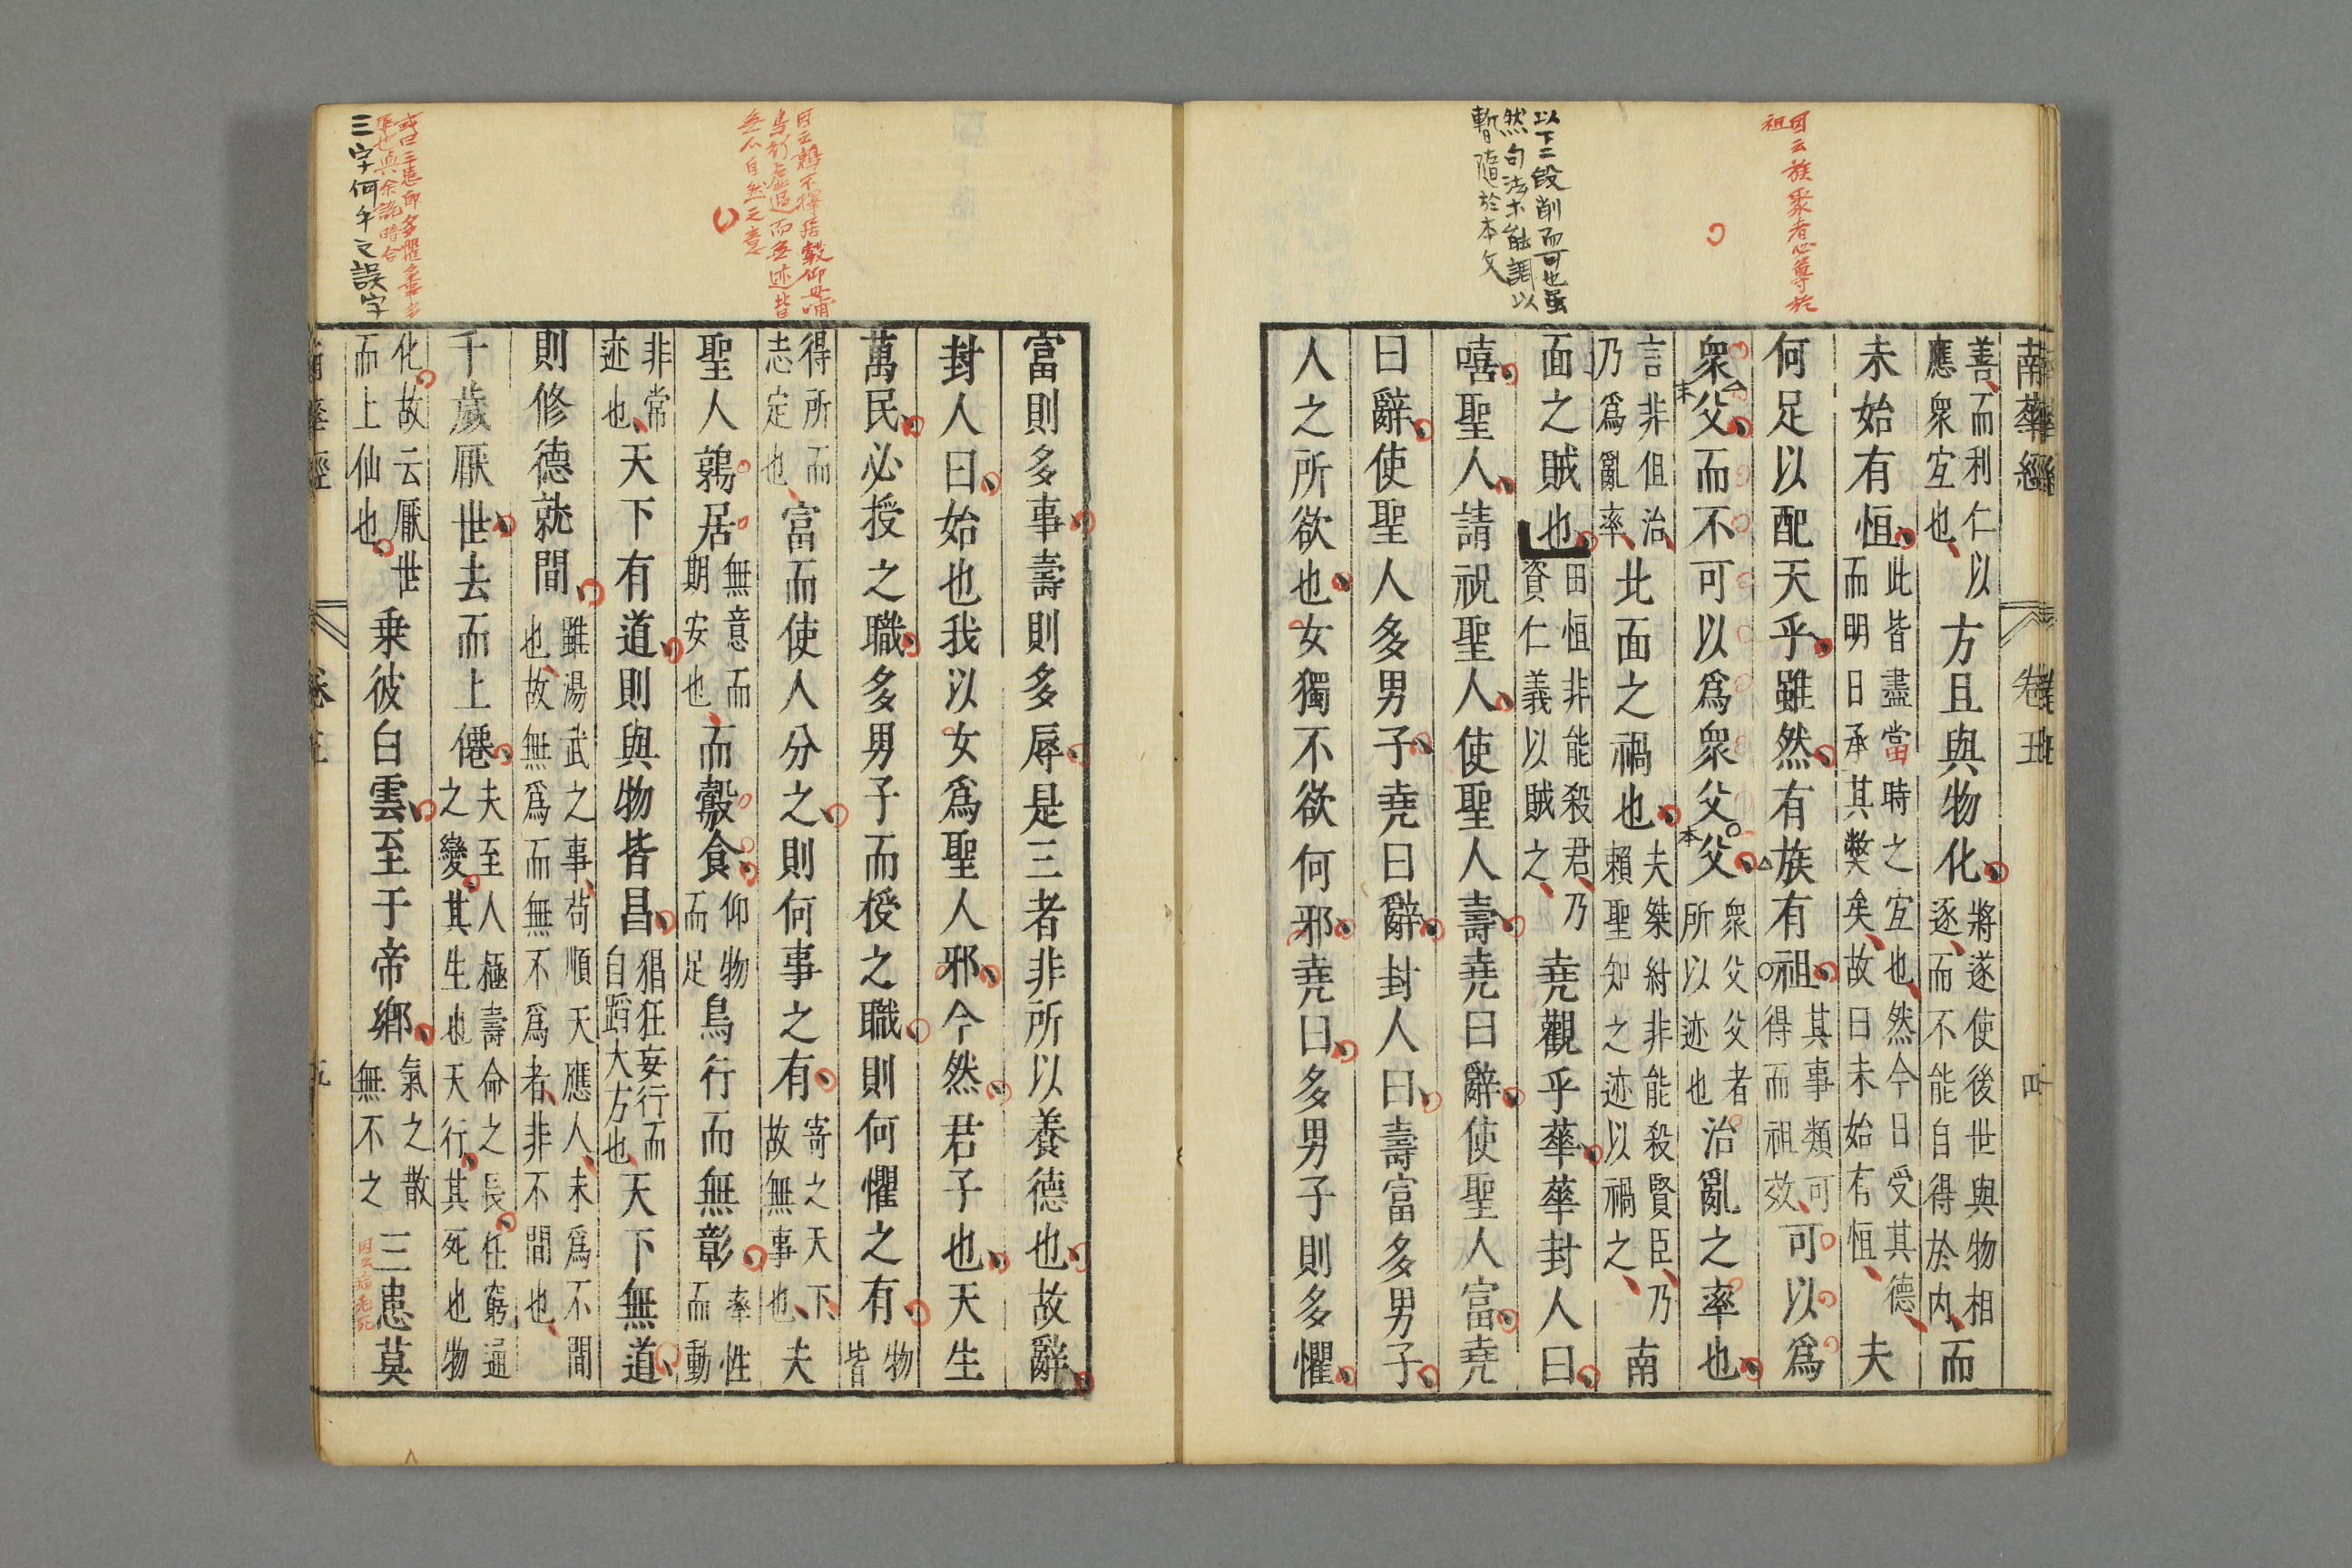 因云族聚者必尊於
祖
以下二段削而可也虽
然句法不能調以
暫隨於本文
南華經 卷五 四
善而利仁以
應衆宜也
方且與物化
將遂使後世與物相
逐而不能自得於内
而
未始有恒
此皆盡當時之宜也然今日受其德
而明日承其弊矣故曰未始有恒
夫
何足以配天乎雖然有族有祖
其事類可
得而祖效
可以爲
衆父而不可以爲衆父父
末
本
衆父父者
所以迹也
治亂之率也
言非但治
乃爲亂率
此面之禍也
夫桀紂非能殺賢臣乃
賴聖知之迹以禍之
南
面之賊也
田恒非能殺君乃
資仁義以賊之
堯觀乎華華封人曰
嘻聖人請祝聖人使聖人壽堯曰辭使聖人富堯
曰辭使聖人多男子堯曰辭封人曰壽富多男子
人之所欲也女獨不欲何邪堯曰多男子則多懼
因云鶉不擇居鷇仰母哺
鳥行虛過而無迹皆
無心自然之意
或曰三患即多懼多事多
辱也與余說暗合
三字何乎之誤字
富則多事壽則多辱是三者非所以養德也故辭
封人曰始也我以女爲聖人邪今然君子也天生
萬民必授之職多男子而授之職則何懼之有
物
皆
得所而
志定也
富而使人分之則何事之有
寄之天下
故無事也
夫
聖人鶉居
無意而
期安也
而鷇食
仰物
而足
鳥行而無彰
率性
而動
非常
迹也
天下有道則與物皆昌
猖狂妄行而
自蹈大方也
天下無道
則修德就閒
雖湯武之事苟順天應人未爲不閒
也故無爲而無不爲者非不閒也
千歲厭世去而上僊
夫至人極壽命之長任窮通
之變其生也天行其死也物
化故云厭世
而上仙也
乗彼白雲至于帝鄉
氣之散
無不之
三患莫
因云病老死
南華經 卷五 五